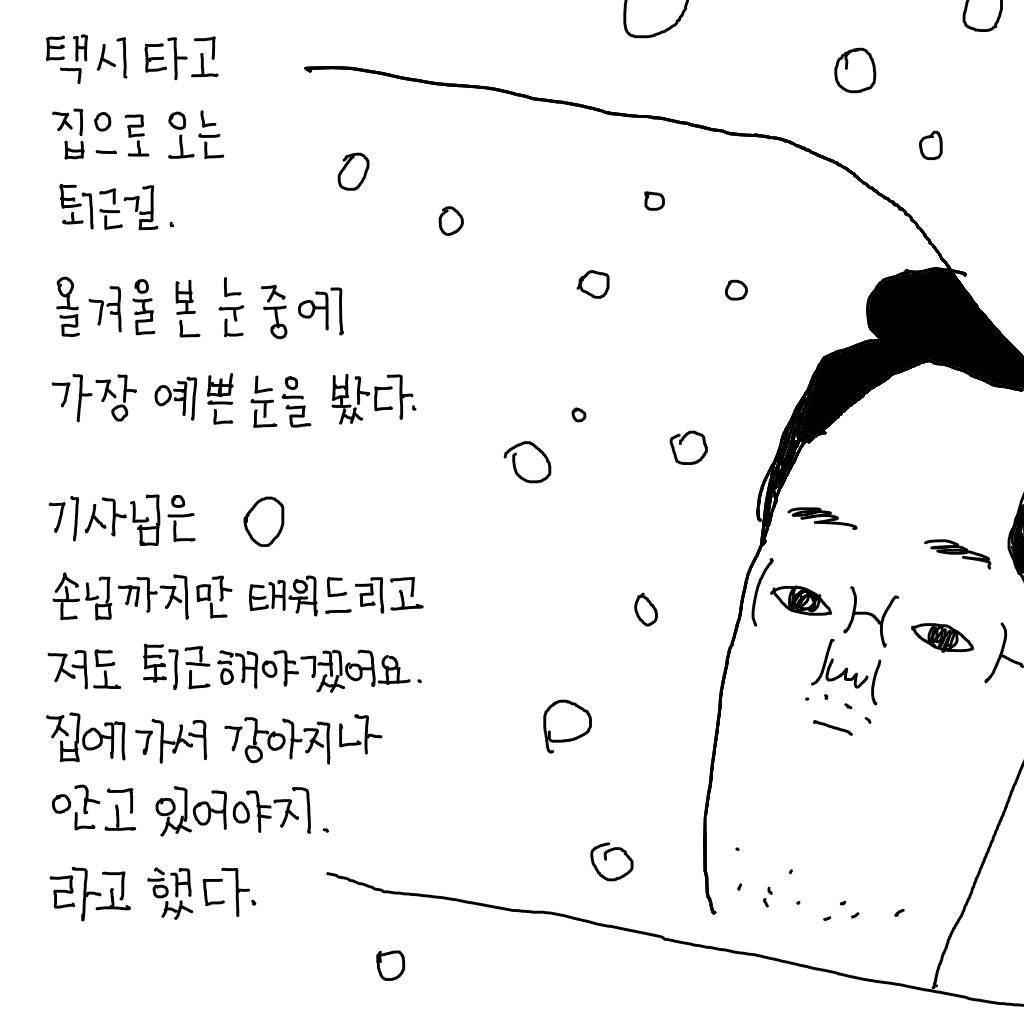 택시 타고
집으로 오는
퇴근길.
올겨울 본 눈 중에
가장 예쁜 눈을 봤다.
기사님은
손님까지만 태워드리고
저도 퇴근해야겠어요.
집에 가서 강아지나
안고 있어야지.
라고 했다.